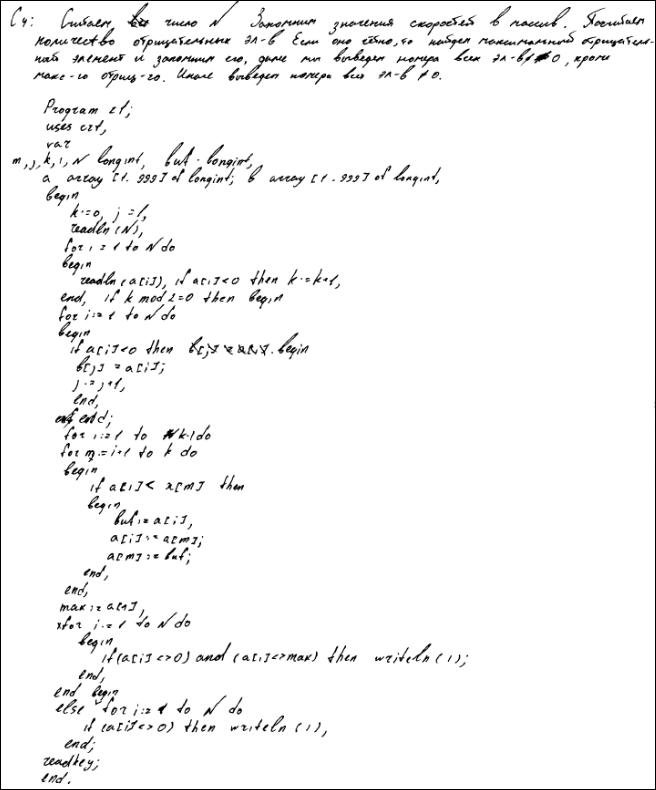 С4: Считаем число N Запомним значения скоростей в массив. Посчитаем
количество отрицательных эл-в Если оно чётно, то найдем максимальный отрицатель-
ный элемент и запомним его, далее мы выведем номера всех эл-в ≠ 0, кроме
макс-го отриц-го. Иначе выведем номера всех эл-в ≠ 0.
Program c4;
uses crt,
var
m, j, k, i, N longint, buf · longint,
a array [1. 999] of longint; b array [1 . 999] of longint,
begin
k:=0, j =1,
readln (N),
for i = 1 to N do
begin
readln (a[i]), if a[i]<0 then k:=k+1,
end, if k mod 2=0 then begin
for i:=1 to N do
begin
if a[i]<0 then begin
b[j] = a[i];
j:=j+1,
end,
end;
for i:=1 to k-1 do
for m:=i+1 to k do
begin
if a[i] < a[m] then
begin
buf:=a[i],
a[i]:=a[m];
a[m]:=buf;
end,
end,
max:=a[1],
for i:=1 to N do
begin
if(a[i]<>0) and (a[i]<>max) then writeln (i);
end,
end begin
else for i:=1 to N do
if (a[i]<>0) then writeln (i),
end;
readkey;
end.